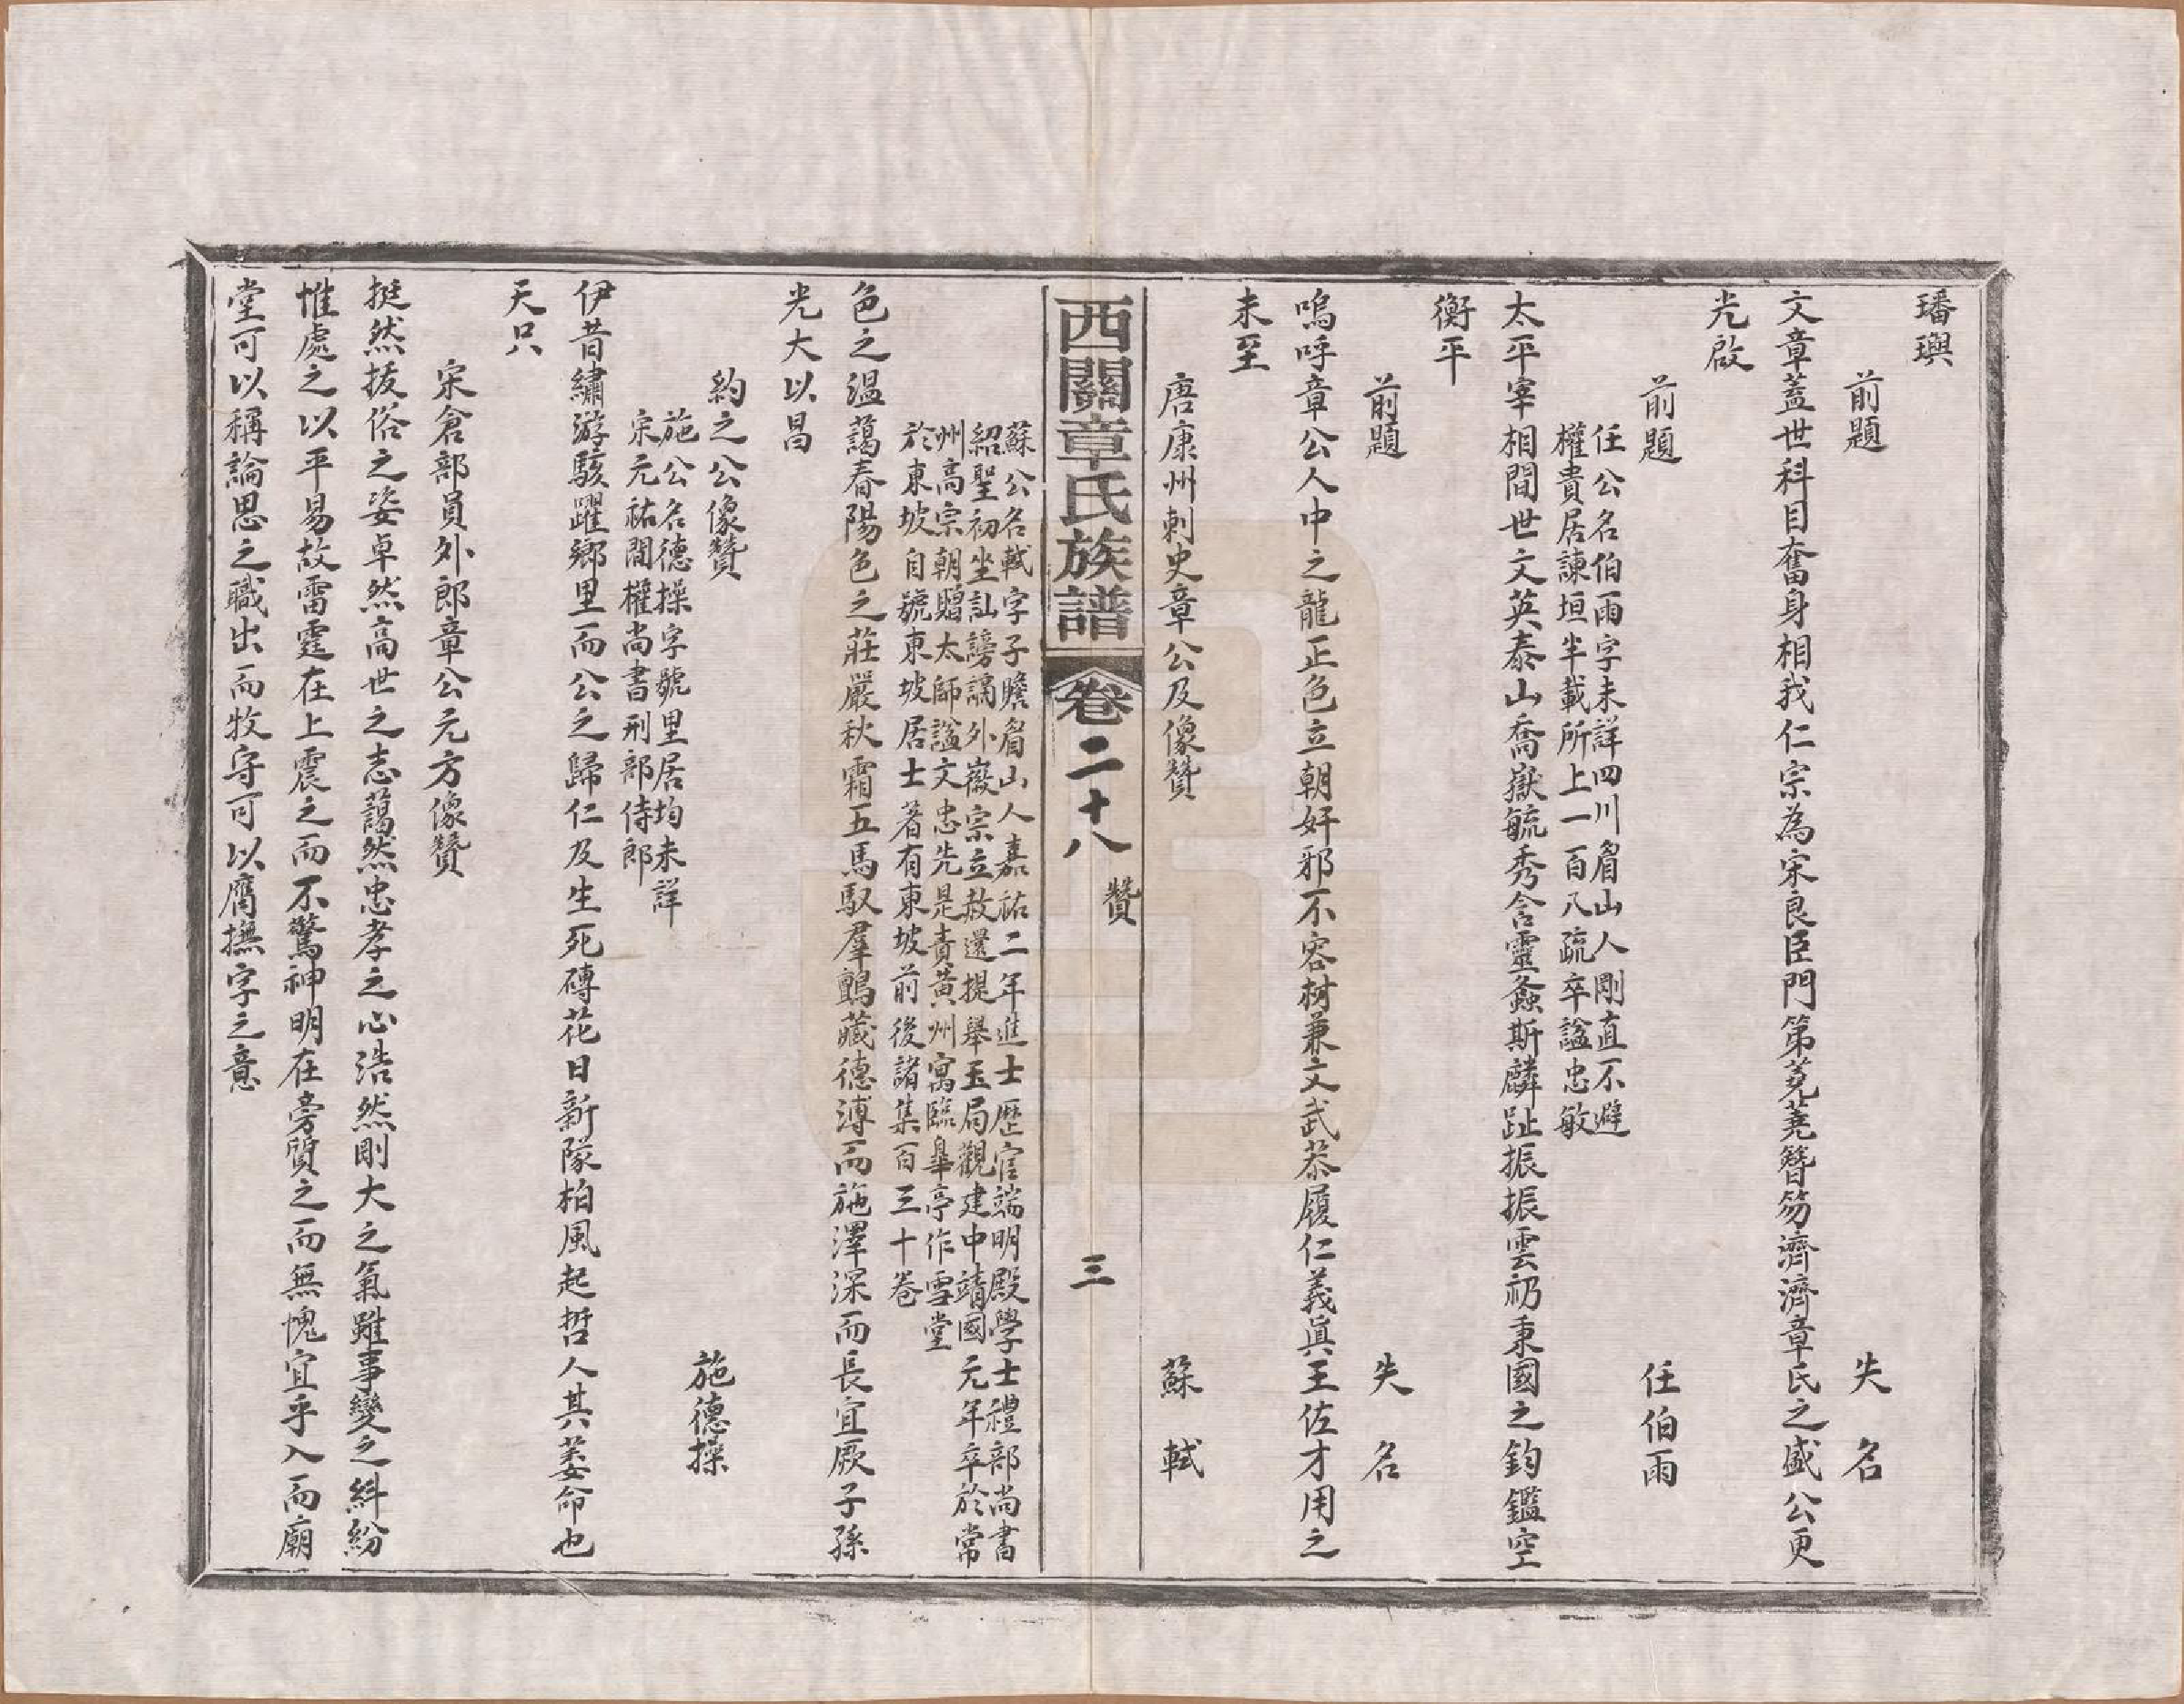 璠璵
前題
失名
文章蓋世科目奮身相我仁宗為宋良臣門第芄蕘簪笏濟濟章氏之盛公更
光啟
前題
任伯雨
任公名伯雨字未詳四川眉山人剛直不避
權貴居諫垣半載所上一百八疏卒諡忠敏
太平宰相間世文英泰山喬嶽毓秀含靈螽斯麟趾振振雲礽秉國之鈞鑑空
衡平
前題
失名
嗚呼章公人中之龍正色立朝奸邪不容樹兼文武恭履仁義真王佐才用之
未至
唐康州刺史章公及像贊
蘇軾
西關章氏族譜
卷二十八
贊
三
蘇公名軾字子瞻眉山人嘉祐二年進士歷官端明殿學士禮部尚書
紹聖初坐訕謗謫外徽宗立赦還提舉玉局觀建中靖國元年卒於常
州高宗朝贈太師諡文忠先是責黃州寓臨皋亭作雪堂
於東坡自號東坡居士著有東坡前後諸集百三十卷
色之溫藹春陽色之莊嚴秋霜五馬馭羣鸇藏德溥而施澤深而長宜厥子孫
光大以昌
約之公像贊
施德操
施公名德操字號里居均未詳
宋元祐間權尚書刑部侍郎
伊昔繡游駭躍鄉里而公之歸仁及生死磚花日新隊柏風起哲人其萎命也
天只
宋倉部員外郎章公元方像贊
挺然拔俗之姿卓然高世之志藹然忠孝之心浩然剛大之氣雖事變之糾紛
惟處之以平易故雷霆在上震之而不驚神明在旁質之而無愧宜乎入而廟
堂可以稱論思之職出而牧守可以膺撫字之意